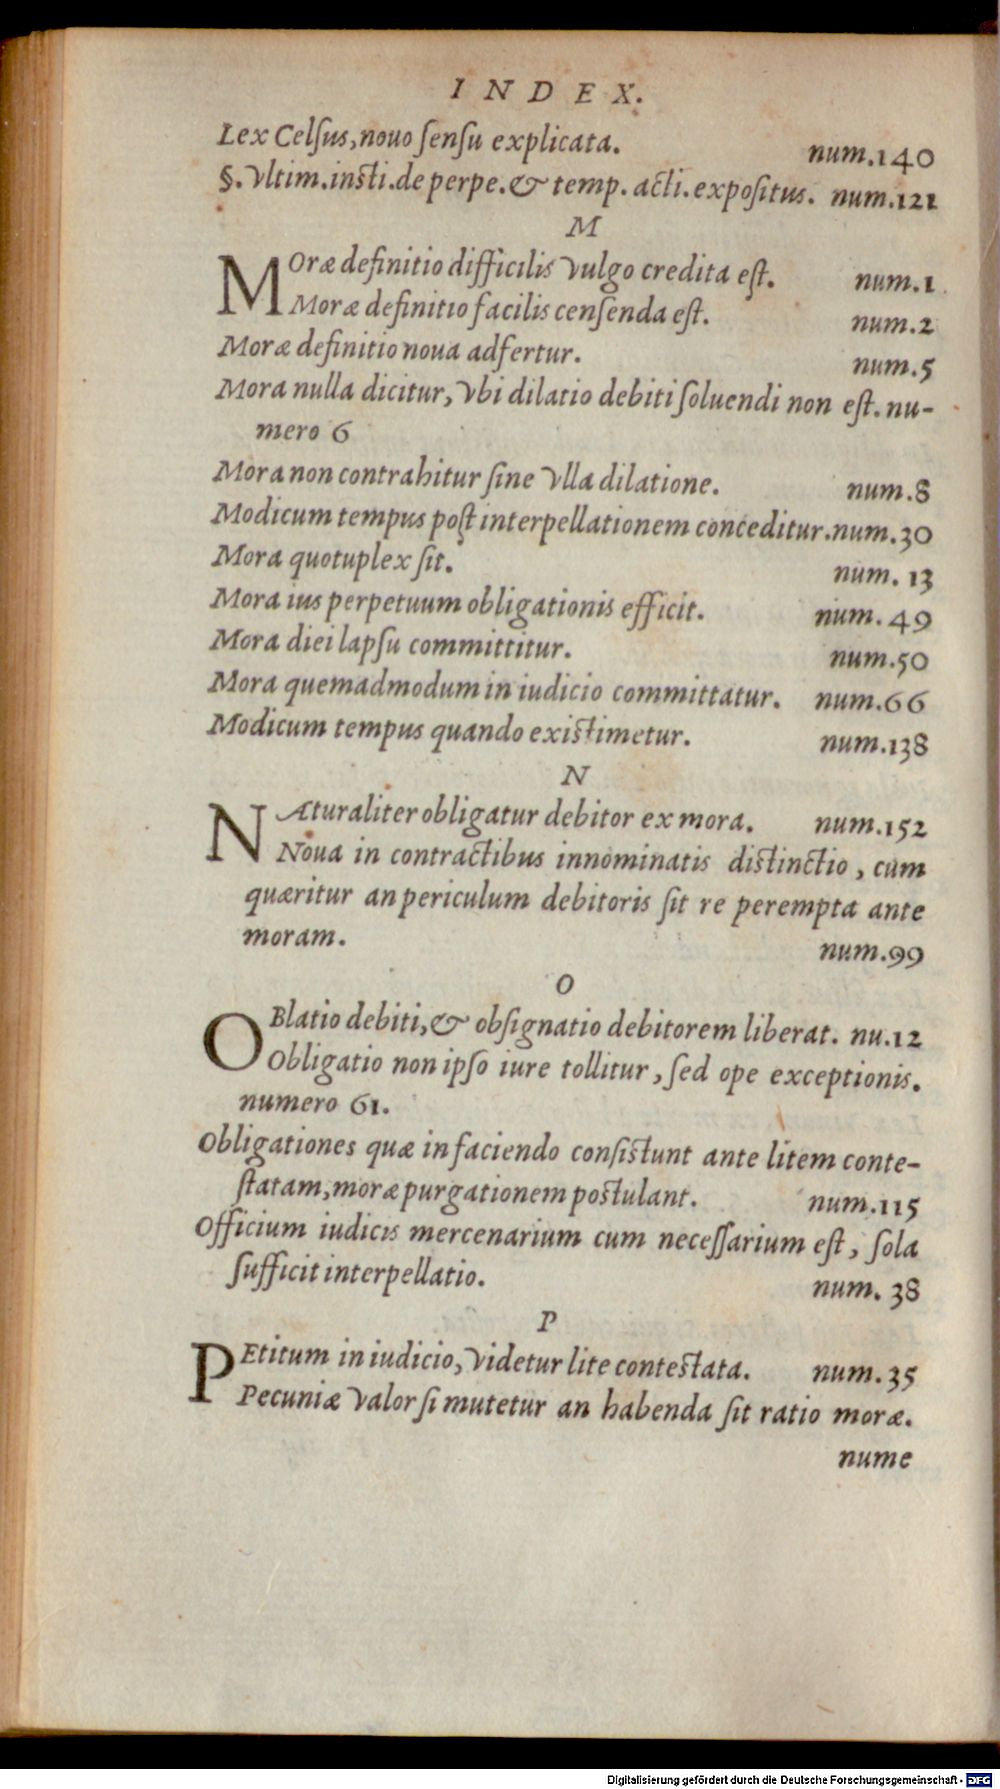 INDEX.
Lex Celſus, nouo ſenſu explicata. num.140
§. Vltim. inſti. de perpe. & temp. acti. expoſitus. num.121
M
MOræ definitio difficilis vulgo credita eſt. num.1
Moræ definitio facilis cenſenda eſt. num.2
Moræ definitio noua adfertur. num.5
Mora nulla dicitur, vbi dilatio debiti ſoluendi non eſt. nu-
mero 6
Mora non contrahitur ſine vlla dilatione. num.8
Modicum tempus poſt interpellationem conceditur. num.30
Mora quotuplex ſit. num. 13
Mora ius perpetuum obligationis efficit. num. 49
Mora diei lapſu committitur. num.50
Mora quemadmodum in iudicio committatur. num.66
Modicum tempus quando exiſtimetur. num.138
N
NAturaliter obligatur debitor ex mora. num.152
Noua in contractibus innominatis diſtinctio, cum
quæritur an periculum debitoris ſit re perempta ante
moram. num.99
O
OBlatio debiti, & obſignatio debitorem liberat. nu.12
Obligatio non ipſo iure tollitur, ſed ope exceptionis.
numero 61.
Obligationes quæ in faciendo conſiſtunt ante litem conte-
ſtatam, moræ purgationem poſtulant. num.115
Officium iudicis mercenarium cum neceſſarium eſt, ſola
ſufficit interpellatio. num. 38
P
PEtitum in iudicio, videtur lite conteſtata. num. 35
Pecuniæ valor ſi mutetur an habenda ſit ratio moræ.
nume
Digitalisierung gefördert durch die Deutsche Forschungsgemeinschaft - DFG